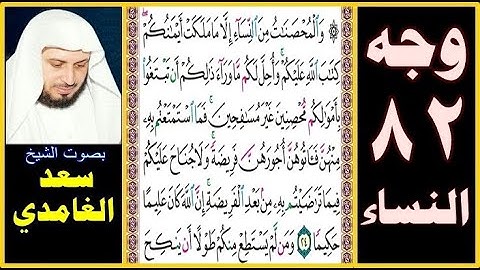 وَٱلْمُحْصَنَٰتُ مِنَ ٱلنِّسَآءِ إِلَّا مَا مَلَكَتْ أَيْمَٰنُكُمْ
كِتَٰبَ ٱللَّهِ عَلَيْكُمْ وَأُحِلَّ لَكُم مَّا وَرَآءَ ذَٰلِكُمْ أَن تَبْتَغُوا۟
بِأَمْوَٰلِكُم مُّحْصِنِينَ غَيْرَ مُسَٰفِحِينَ فَمَا ٱسْتَمْتَعْتُم بِهِۦ
مِنْهُنَّ فَـَٔاتُوهُنَّ أُجُورَهُنَّ فَرِيضَةً وَلَا جُنَاحَ عَلَيْكُمْ
فِيمَا تَرَٰضَيْتُم بِهِۦ مِنۢ بَعْدِ ٱلْفَرِيضَةِ إِنَّ ٱللَّهَ كَانَ عَلِيمًا
حَكِيمًا ٢٤ وَمَن لَّمْ يَسْتَطِعْ مِنكُمْ طَوْلًا أَن يَنكِحَ
وجه
٨٢
النساء
بصوت الشيخ
سعد
الغامدي